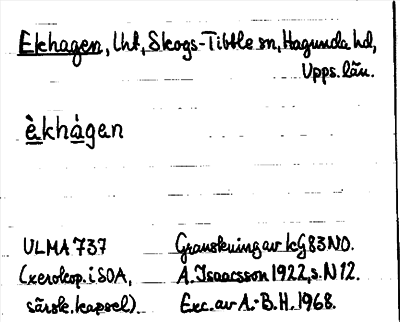 Ekhagen, Lht, Skogs-Tibble sn, Hagunda hd,
Upps. län.
èkhàgen
ULMA 737 Granskning av kG 83 NO.
(xerokop. i SOA, A. Isaacsson 1922, s. N 12.
särsk. kapsel). Exc. av A.-B. H. 1968.